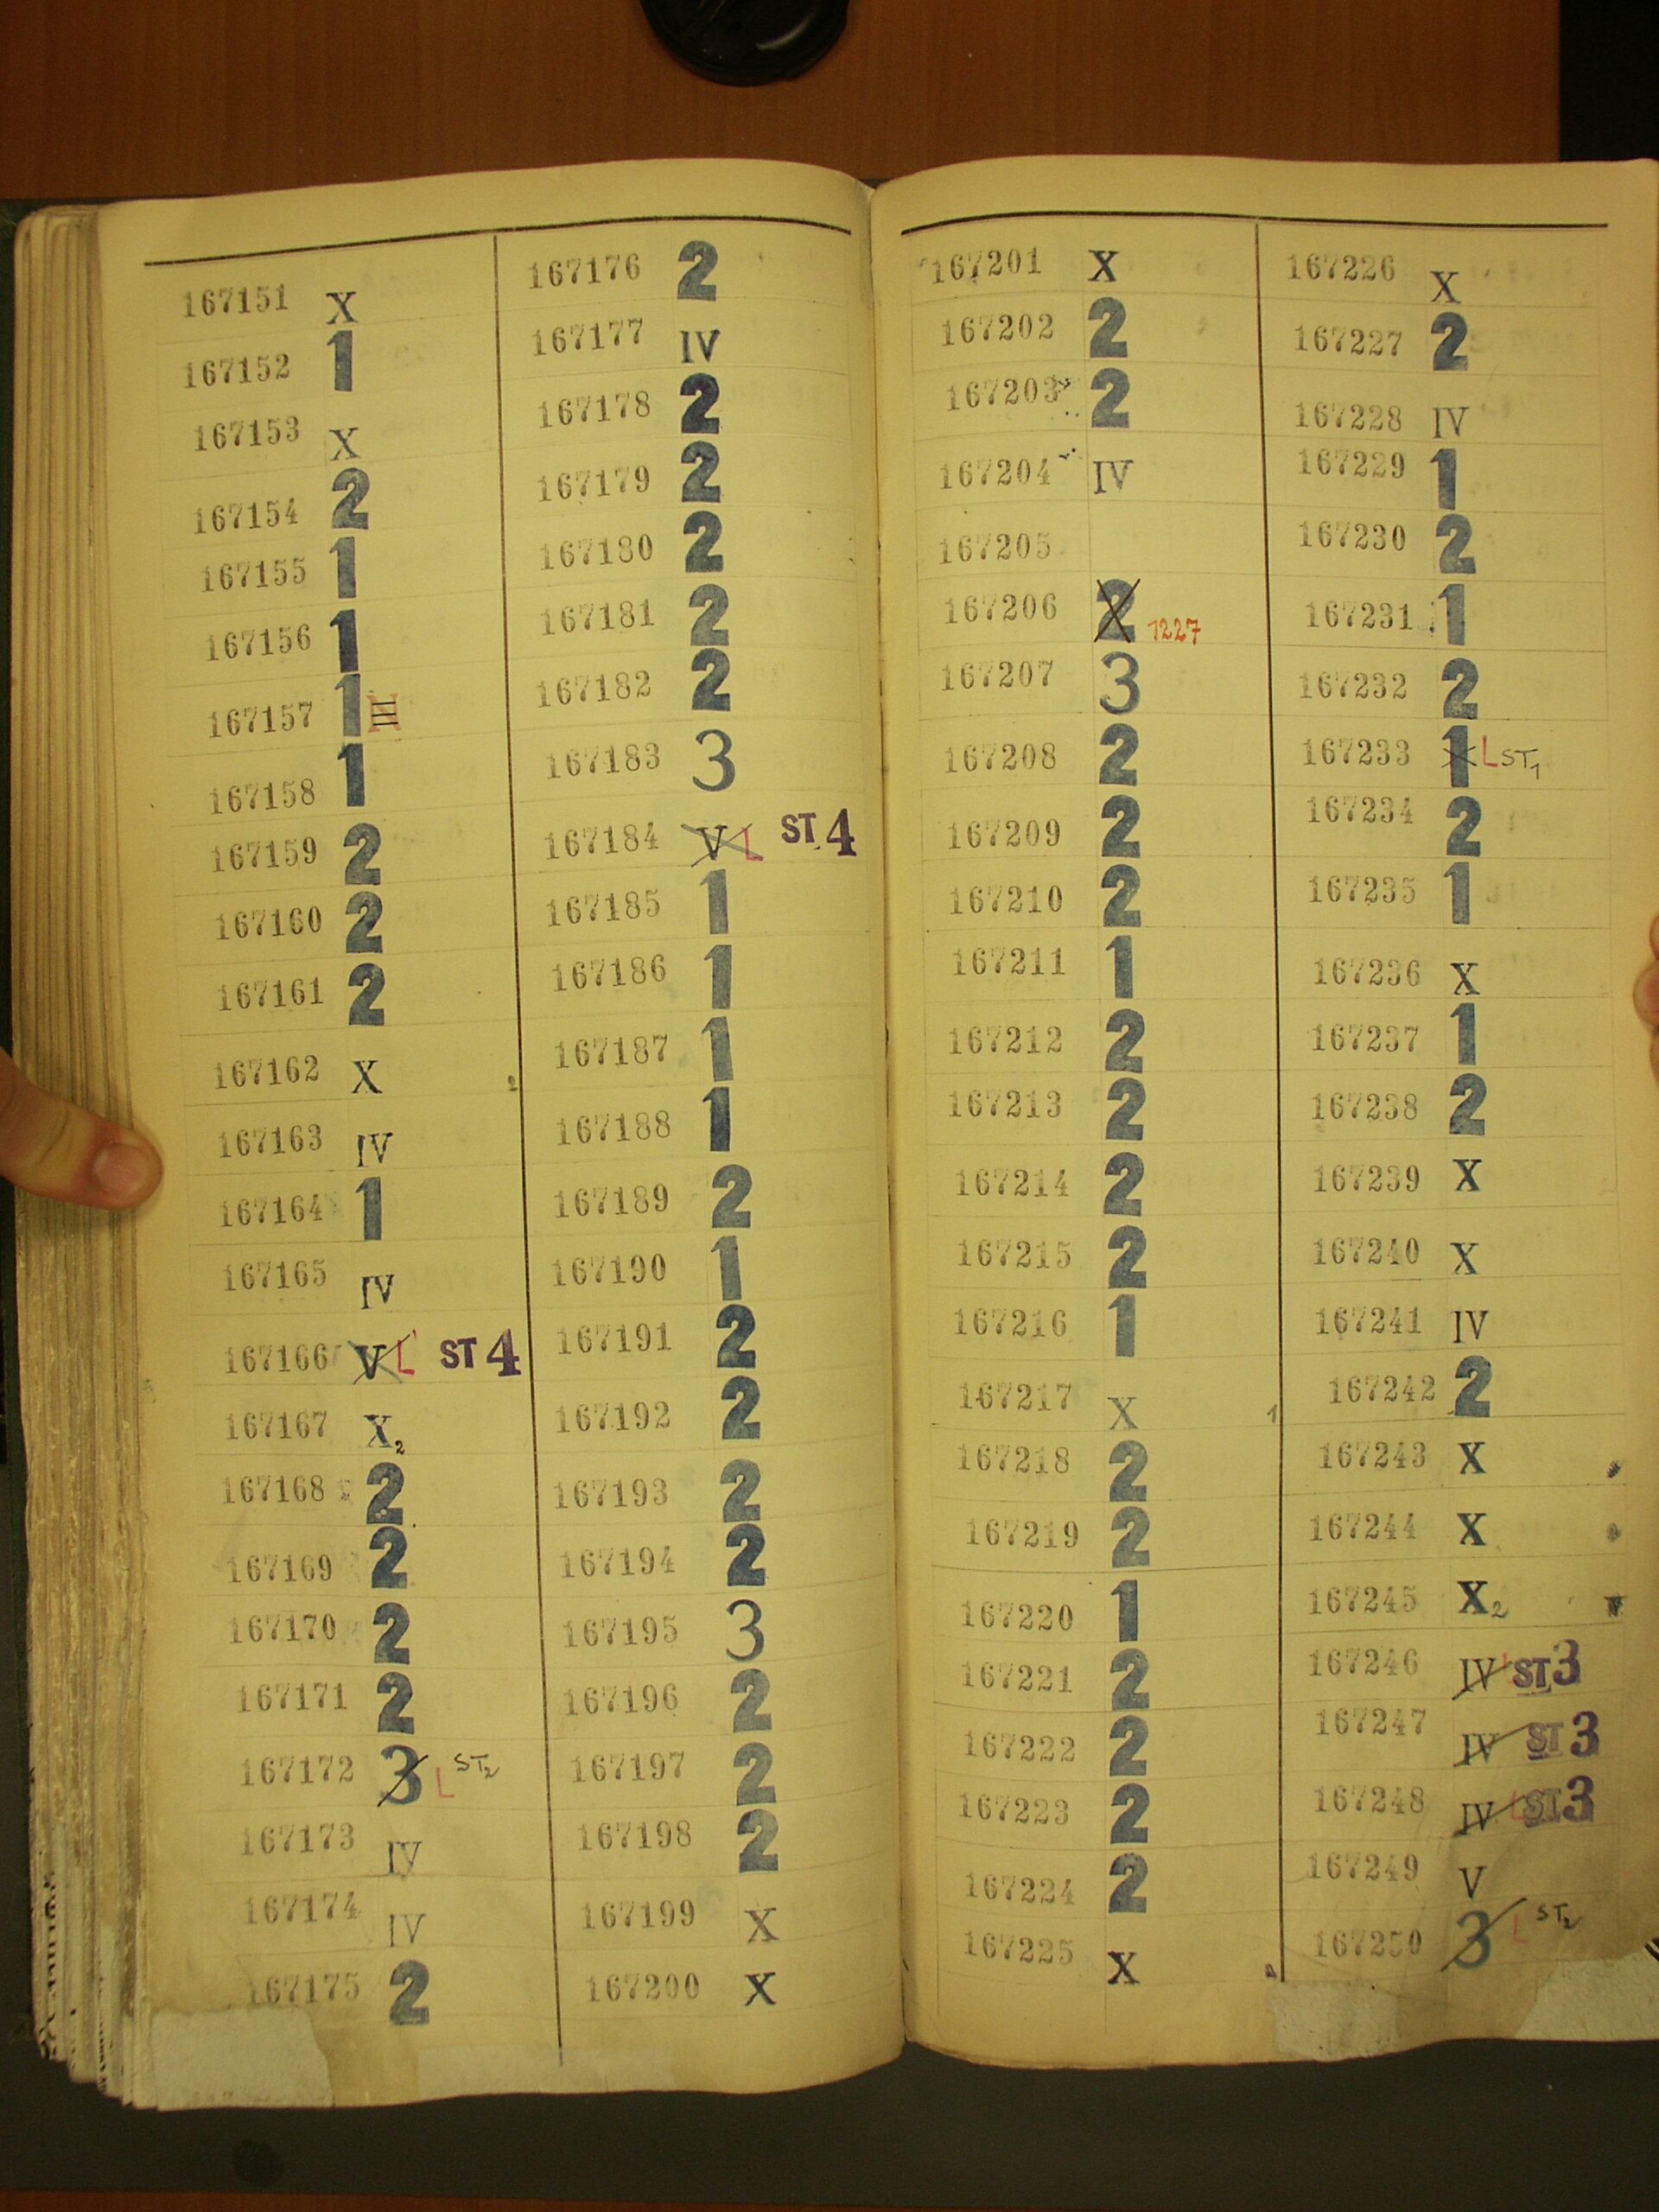 167151 X
167152 1
167153 X
167154 2
167155 1
167156 1
167157 1
167158 1
167159 2
167160 2
167161 2
167162 X
167163 IV
167164 1
167165 IV
167166 V L ST 4
167167 X2
167168 2
167169 2
167170 2
167171 2
167172 3 L ST2
167173 IV
167174 IV
167175 2
167176 2
167177 IV
167178 2
167179 2
167180 2
167181 2
167182 2
167183 3
167184 V L ST 4
167185 1
167186 1
167187 1
167188 1
167189 2
167190 1
167191 2
167192 2
167193 2
167194 2
167195 3
167196 2
167197 2
167198 2
167199 X
167200 X
167201 X
167202 2
167203 2
167204 IV
167205
167206 2 1227
167207 3
167208 2
167209 2
167210 2
167211 1
167212 2
167213 2
167214 2
167215 2
167216 1
167217 X
167218 2
167219 2
167220 1
167221 2
167222 2
167223 2
167224 2
167225 X
167226 X
167227 2
167228 IV
167229 1
167230 2
167231 1
167232 2
167233 1 L ST1
167234 2
167235 1
167236 X
167237 1
167238 2
167239 X
167240 X
167241 IV
167242 2
167243 X
167244 X
167245 X2
167246 IV L ST 3
167247 IV ST 3
167248 IV L ST 3
167249 V
167250 3 L ST2